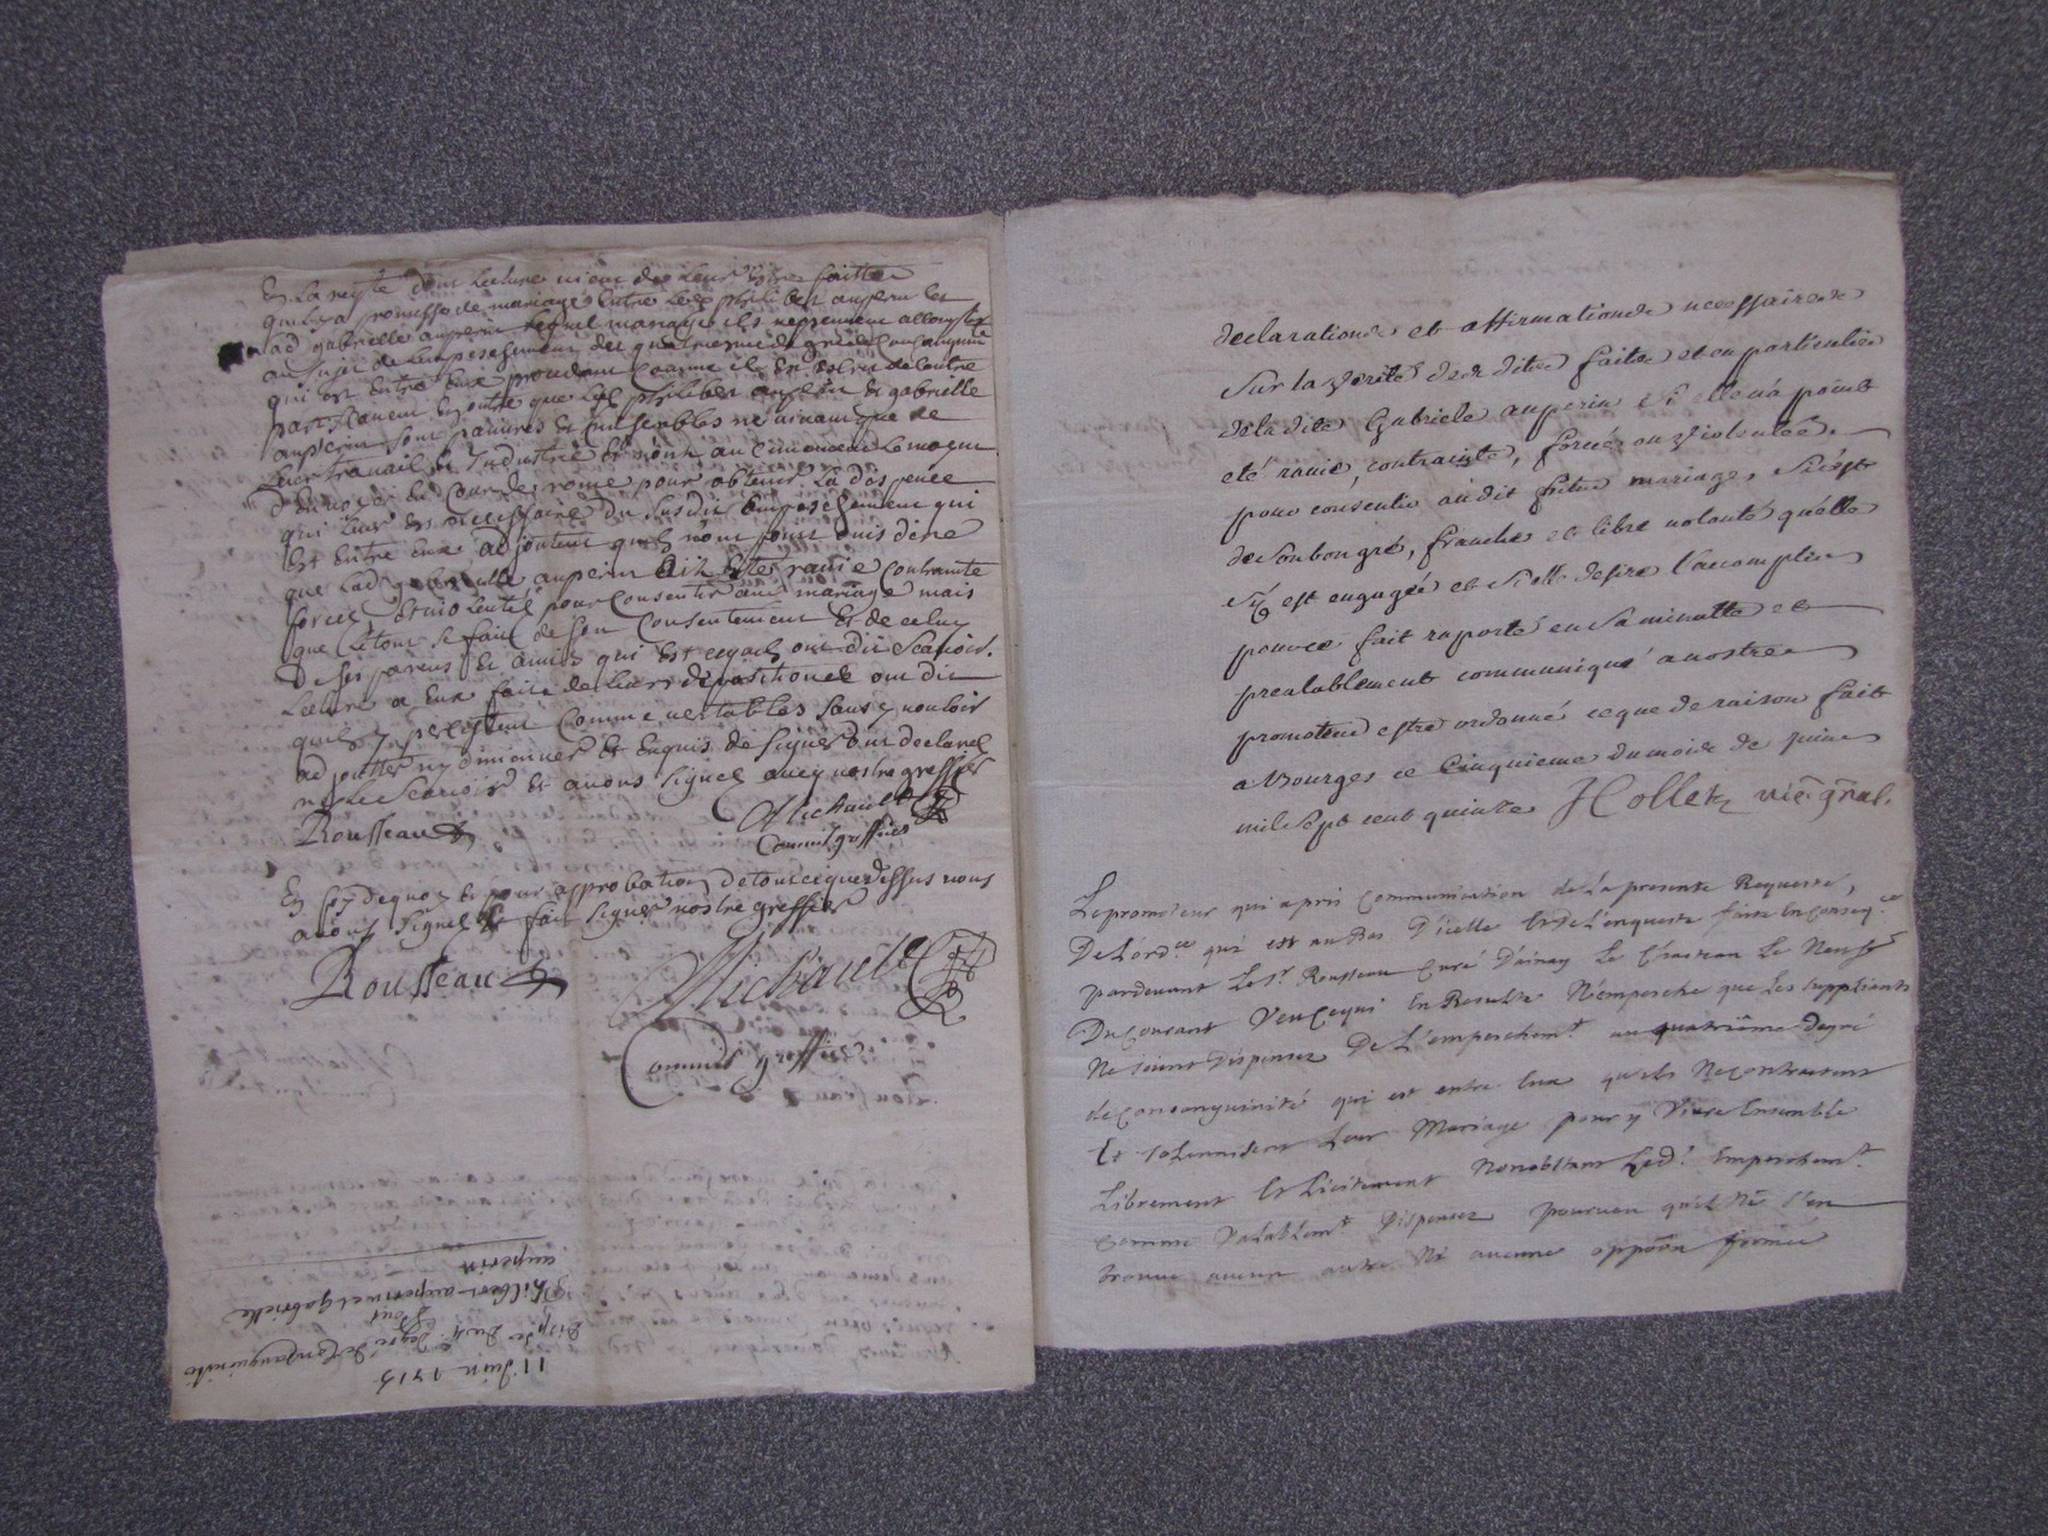 Et la reqte dont lecture vient de leur estre faitte
quil y a promesse de mariage entre led philibert auperin et
lad gabrielle auperin lequel mariage ils
au sujet de lempeschement du quatriesme degré de consanguinité
qui est entre eux
part et outre que led philibert auperin et gabrielle
auperin sont pauvres et ensembles ne vivant que de
leur travail et industrie et n'ont aucunement le moyen
d'envoyer en cour de rome pour obtenir la dispence
qui leur est necessaire du susdit empeschement qui
est entre eux adjoutent quils n'ont point ouis dire
que lad gabrielle auperin ait esté ravie contrainte
forcée et violentée pour consentir aud mariage mais
que le tout se fait de son consentement et de celuy
de ses parens et amis qui est ce quils ont dit scavoir.
Lecture a eux faite de leurs depositions ont dit
quils y persistent comme veritables sans y vouloir
adjoutter ny diminuer et enquis de signer ont declaré
ne le scavoir et avons signé avecq nostre greffier
Rousseau Michault
Commis greffier
En foy de quoy et pour approbation de tout ce que dessus nous
avons signé et fait signer nostre greffier
Rousseau Michault
Commis greffier
11 Juin 1715
Disp. de Du 4e degré de Consanguinité
Pour
Philibert auperin et gabrielle
auperin
declarations et affirmations necessaires
sur la verité des dites faits et en particulier
de la dite Gabriele auperin si elle n'a point
eté ravie, contrainte, forcée ou violentée
pour consentir audit futur mariage, si c'est
de son bon gré, franche et libre volonté qu'elle
s'y est engagée et si elle desire l'accomplir
pour ce fait raporté en sa minutte et
prealablement communiqué a nostre
promoteur estre ordonné ce que de raison fait
a Bourges ce Cinquieme du mois de juin
mil sept cent quinze J Collet vic. gñal.
Le promoteur qui a pris Communication de La presente Requeste,
De L'ord.ce qui est au Bas D'icelle Et de L'enqueste faite En conseq.ce
pardevant Le Sr Rousseau Curé D'ainay Le Chateau Le Neuf
Du Courant Veu Ce qui En Resulte N'empesche que Les suppliants
Ne soient Dispensez De L'empeschemt au quatriême Degré
de consanguinité qui est entre Eux qu'ils Ne contractent
Et solennisent Leur Mariage pour y Vivre Ensemble
Librement Et Licitement Nonobstant Led. Empeschemt
Comme Valablemt Dispensez pourveu qu'il Ne s'en
trouve aucun autre Ni aucune oppõon formée